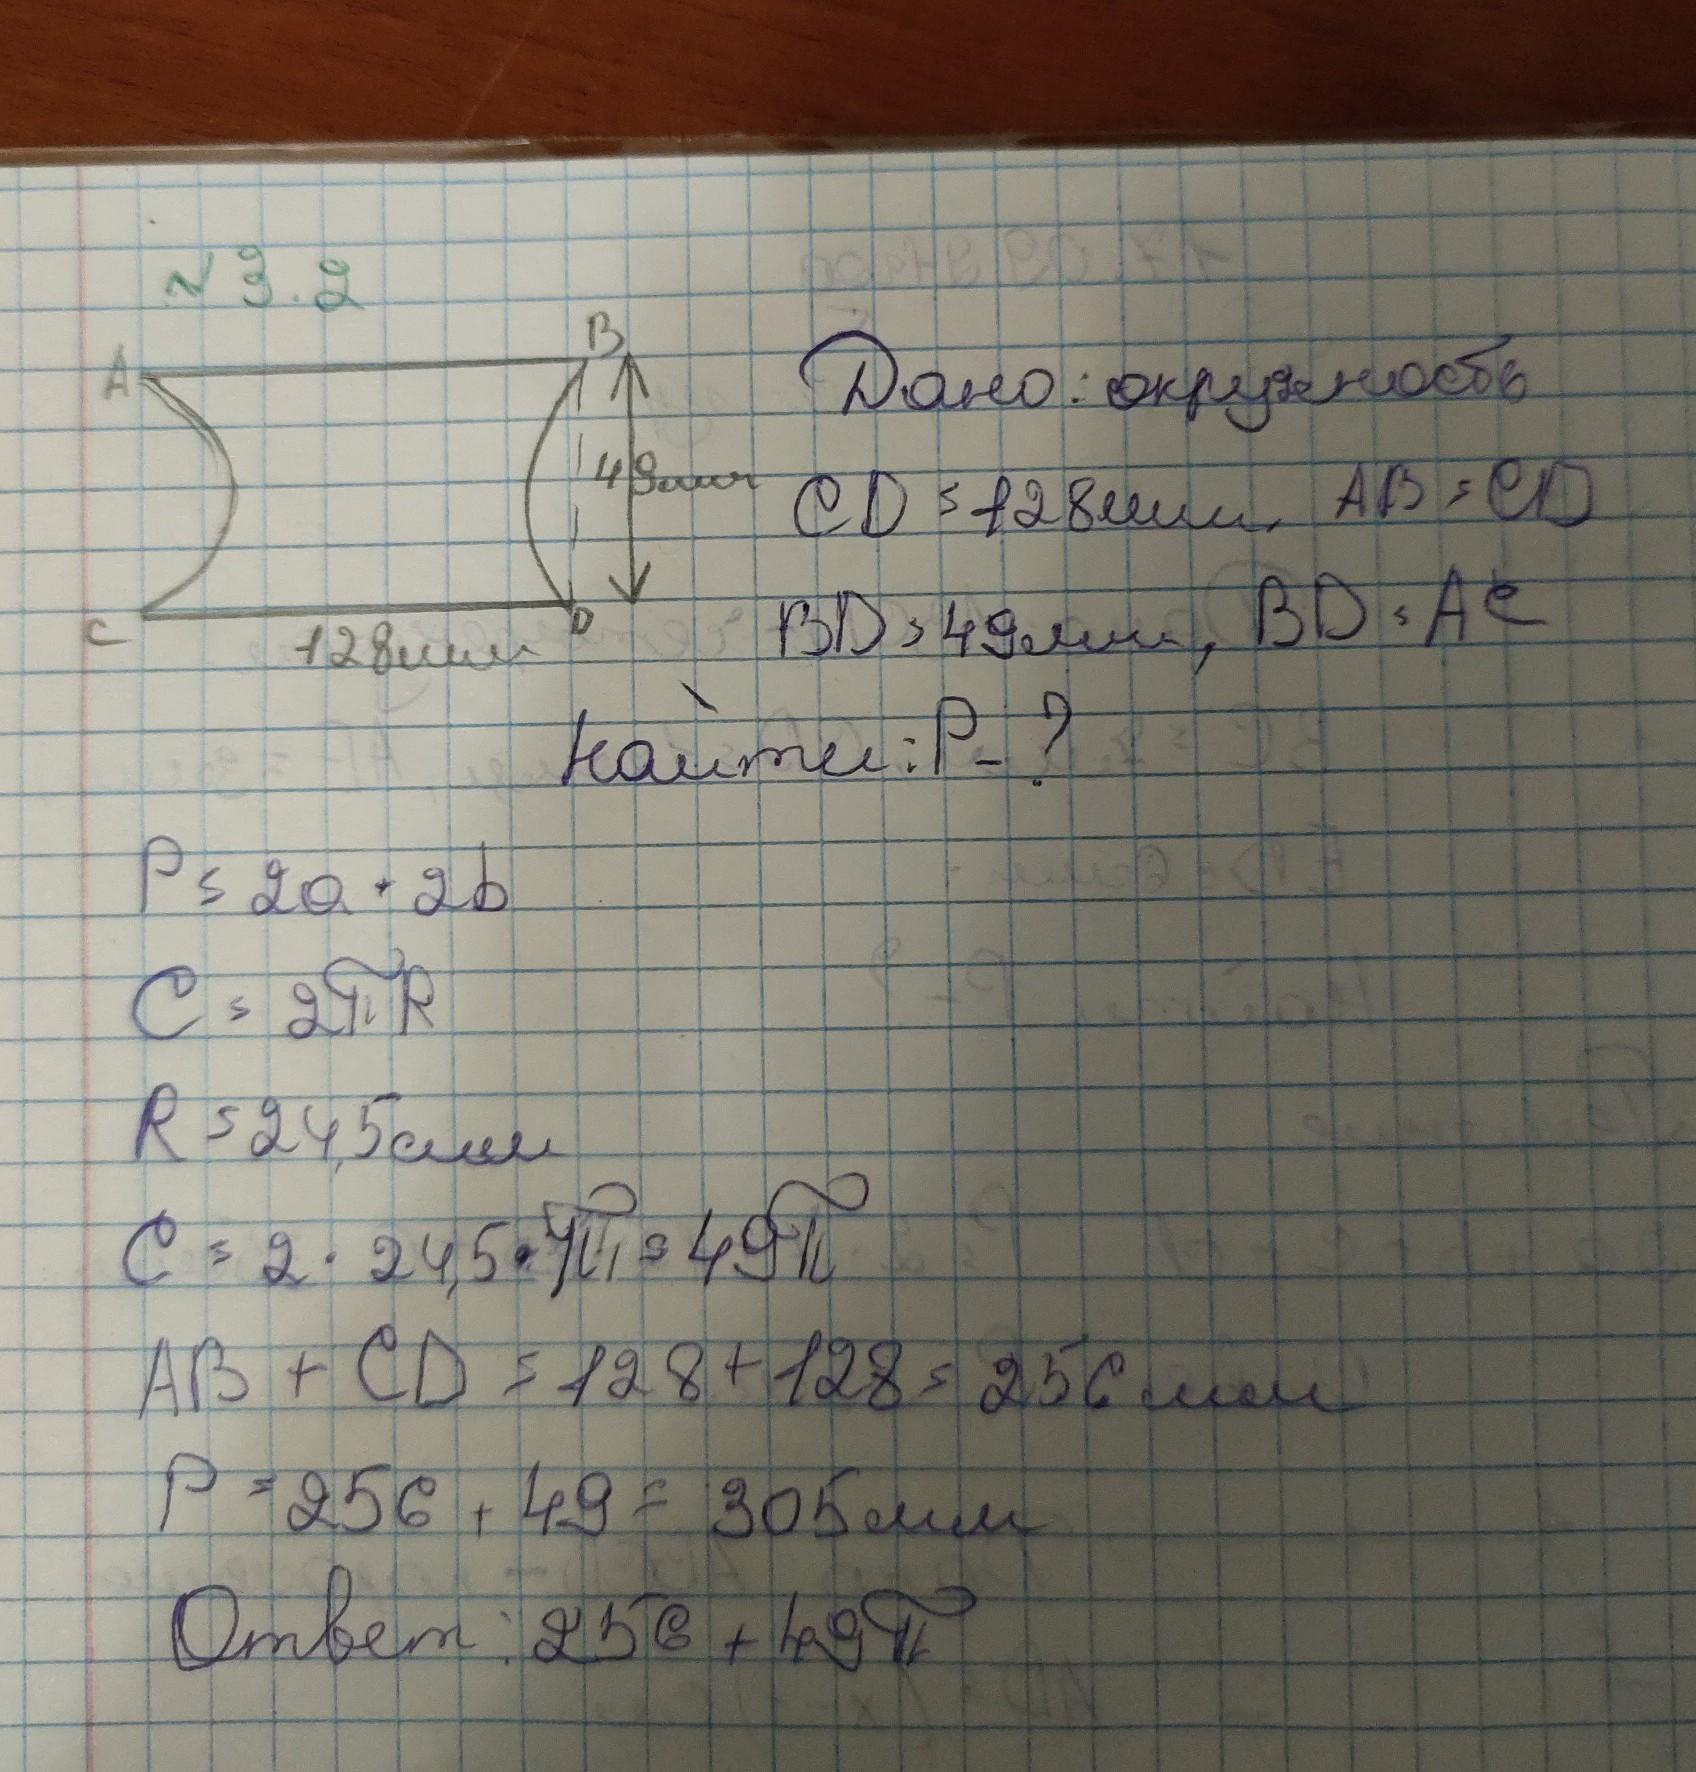 № 3.2
A
B
49мм
C
D
128мм
Дано: окружность
CD = 128мм, AB = CD
BD = 49мм, BD = AC
Найти: P - ?
P = 2a + 2b
C = 2πR
R = 24,5мм
C = 2 · 24,5 · π = 49π
AB + CD = 128 + 128 = 256мм
P = 256 + 49 = 305мм
Ответ: 256 + 49π